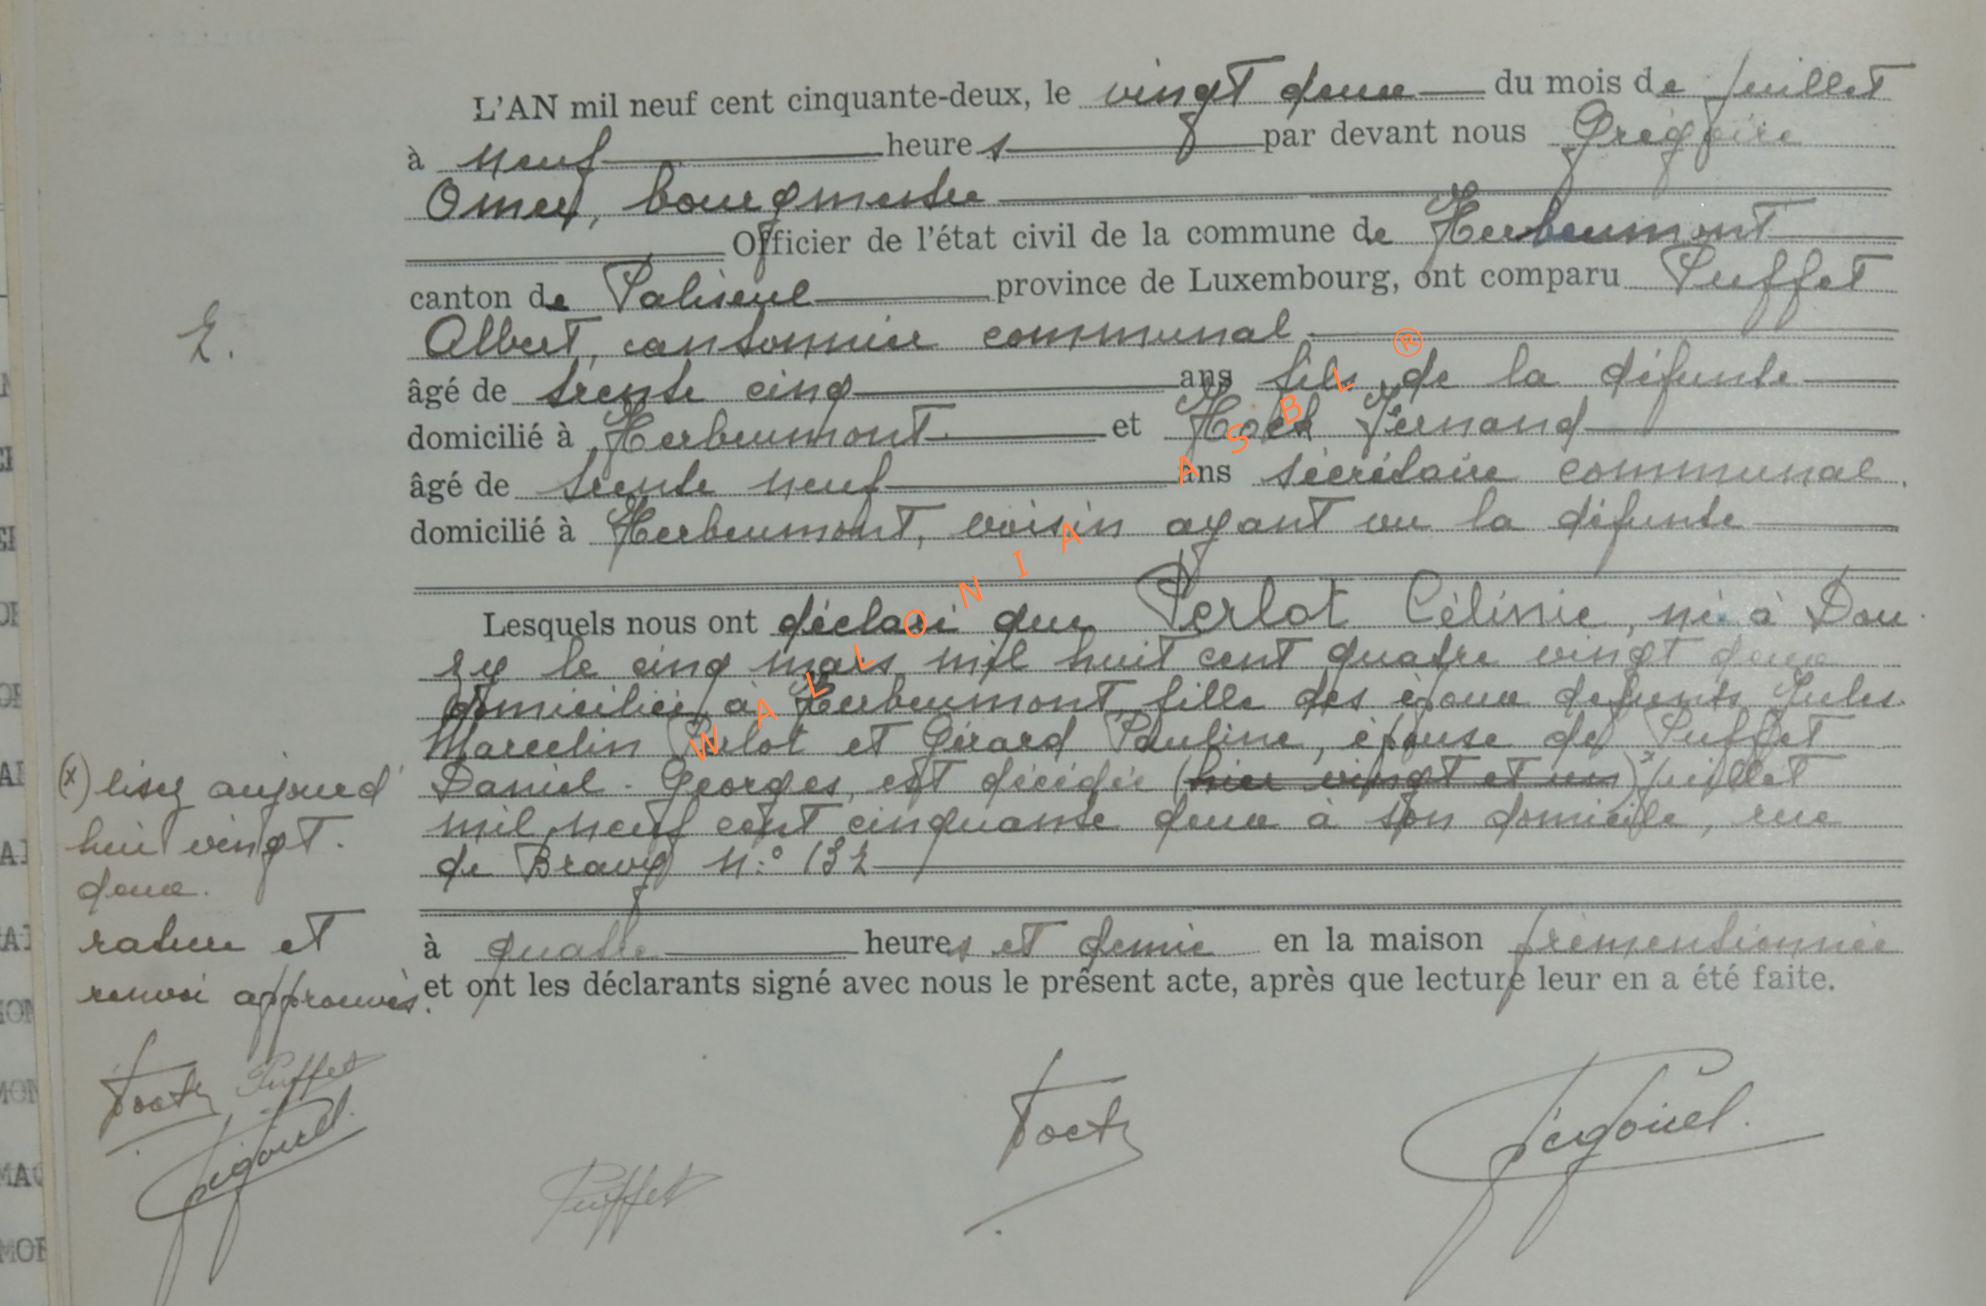 L'AN mil neuf cent cinquante-deux, le vingt deux du mois de juillet
à neuf heures par devant nous Grégoire
Omer, bourgmestre
Officier de l'état civil de la commune de Herbeumont
canton de Paliseul province de Luxembourg, ont comparu Puffet
Albert, cantonnier communal
âgé de trente cinq ans fils de la défunte
domicilié à Herbeumont et Fernand
âgé de trente neuf ans sécrétaire communal,
domicilié à Herbeumont, voisin ayant vu la défunte
Lesquels nous ont déclaré que Perlot Célinie, née à Dou
zy le cinq mars mil huit cent quatre vingt deux
domiciliée à Herbeumont, fille des époux défunts Jules
Marcelin Perlot et Gérard Pauline, épouse de Puffet
Daniel-Georges, est décédée (hier vingt et un) x juillet
mil neuf cent cinquante deux à son domicile, rue
de Bravy n:° 132
à quatre heures et demie en la maison prémentionnée
et ont les déclarants signé avec nous le présent acte, après que lecture leur en a été faite.
2.
(x) lisez aujourd'
hui vingt.
deux.
rature et
renvoi approuvés.
Puffet
Puffet
WALLONIA ASBL ®